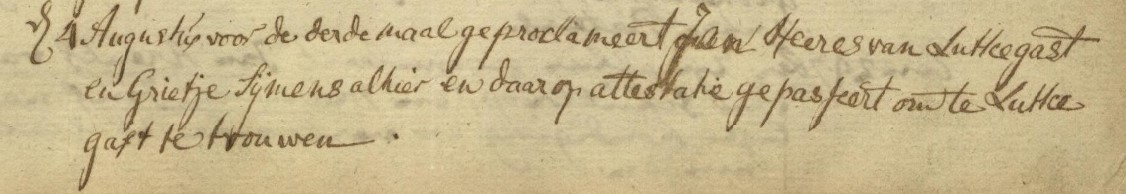 d 4 Augustij voor de derde maal geproclameert Jan Heeres van Luttkegast
en Grietje Sijmens alhier en daar op attestatie gepasseert om te Luttke
gast te trouwen.